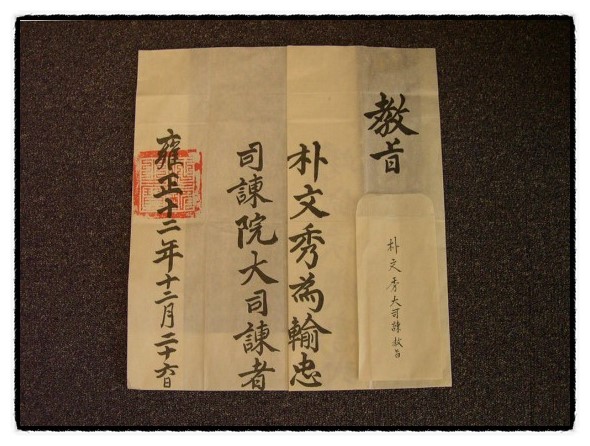 教旨
朴文秀為輸忠
司諫院大司諫者
雍正十二年十二月二十六日
朴文秀大司諫教旨